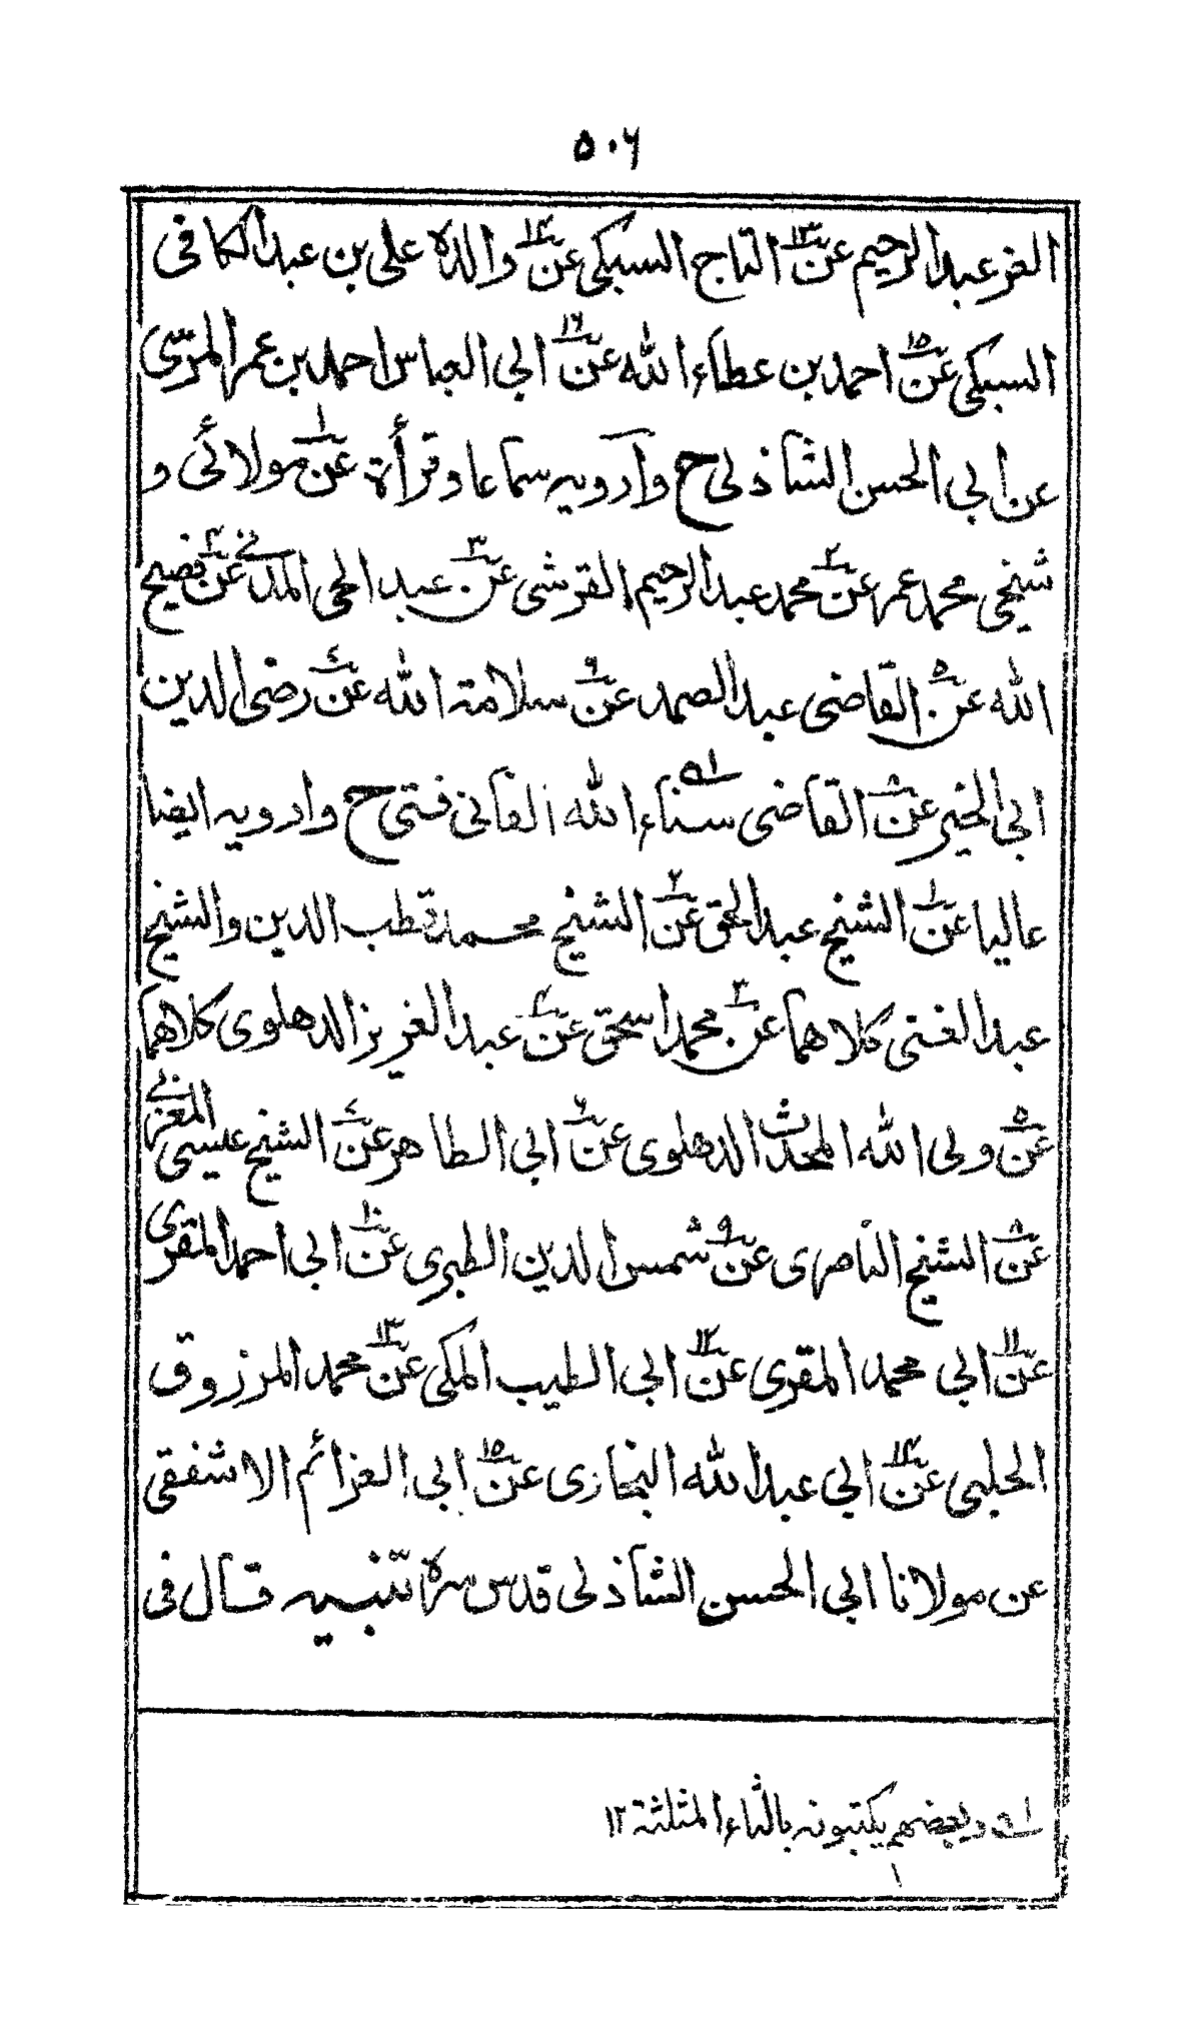 ٥٠٦
العز عبدالرحيم عن١٣ التاج السبكى عن١٤ والده على بن عبدالكافى
السبكى عن١٥ احمد بن عطاء الله عن١٦ ابي العباس احمد بن عمر المرسى
عن ابي الحسن الشاذلى ح وارويه سماعا وقرأة عن١ مولائى و
شيخى محمد عمر عن٢ محمد عبدالرحيم القرشى عن٣ عبد الحى المدنى عن٤ فصيح
الله عن٥ القاضى عبدالصمد عن٦ سلامة الله عن٧ رضى الدين
ابى الخير عن٨ القاضى سناء اه الله الفانى فتى ح وارويه ايضا
عاليا عن١ الشيخ عبدالحق عن٢ الشيخ محمد قطب الدين والشيخ
عبدالغنى كلاهما عن٣ محمد اسحق عن٤ عبد العزيز الدهلوى كلاهما
عن٥ ولى الله المحدث الدهلوى عن٦ ابى الطاهر عن٧ الشيخ عيسى المغربى
عن٨ الشيخ الناصرى عن٩ شمس الدين الطبرى عن١٠ ابى احمد المقرى
عن١١ ابي محمد المقرى عن١٢ ابى الطيب المكى عن١٣ محمد المرزوق
الحلبى عن١٤ ابي عبدالله البخازى عن١٥ ابى العزائم الاشفقى
عن مولانا ابي الحسن الشاذلى قدس سره تنبيه قال فى
اه وبعضهم يكتبونه بالثاء المثلثة ١٢